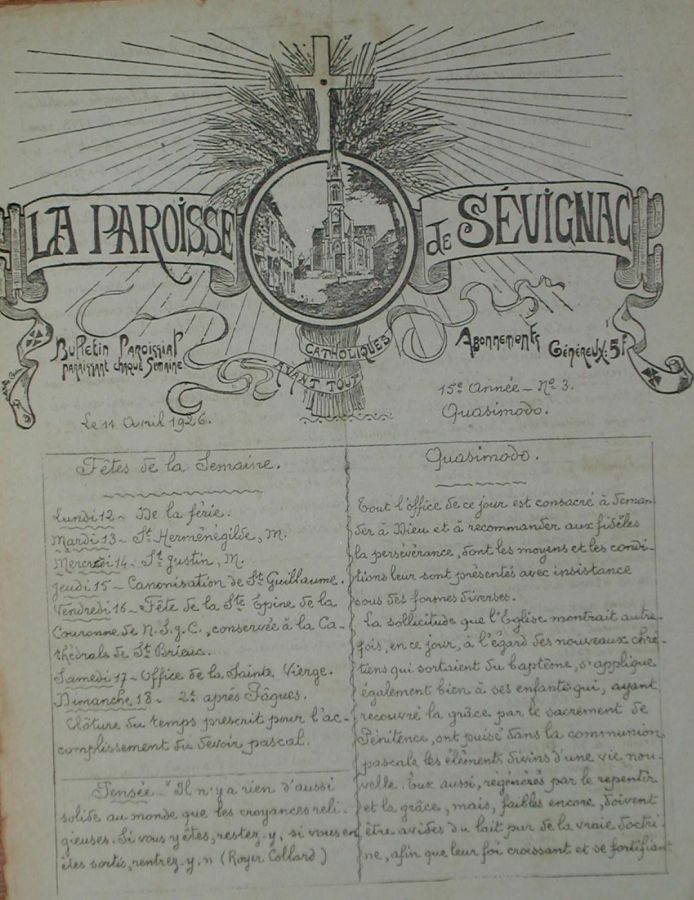 LA PAROISSE de SÉVIGNAC
Bulletin Paroissial
paraissant chaque Semaine
CATHOLIQUES
AVANT TOUT
Abonnements Généreux: 5f
Le 11 Avril 1926.
15e Année - No 3.
Quasimodo.
Fêtes de la Semaine.
Lundi 12 - De la férie.
Mardi 13 - St Herménégilde, M.
Mercredi 14 - St Justin, M.
Jeudi 15 - Canonisation de St Guillaume.
Vendredi 16 - Fête de la Ste Epine de la
Couronne de N.S.J.C., conservée à la Ca-
thédrale de St Brieuc.
Samedi 17 - Office de la Sainte Vierge.
Dimanche 18 - 2e après Pâques.
Clôture du temps prescrit pour l'ac-
complissement du devoir pascal.
Pensée - "Il n'y a rien d'aussi
solide au monde que les croyances reli-
gieuses. Si vous y êtes, restez-y, si vous en
êtes sortis, rentrez-y." (Royer Collard)
Quasimodo.
Tout l'office de ce jour est consacré à deman-
der à Dieu et à recommander aux fidèles
la persévérance, dont les moyens et les condi-
tions leur sont présentés avec insistance
sous des formes diverses.
La sollicitude que l'Eglise montrait autre-
fois, en ce jour, à l'égard des nouveaux chré-
tiens qui sortaient du baptême, s'applique
également bien à ses enfants qui, ayant
recouvré la grâce par le sacrement de
Pénitence, ont puisé dans la communion
pascale les éléments divins d'une vie nou-
velle. Eux aussi, régénérés par le repentir
et la grâce, mais, faibles encore, doivent
être avides du lait pur de la vraie doctri-
ne, afin que leur foi croissant et se fortifiant